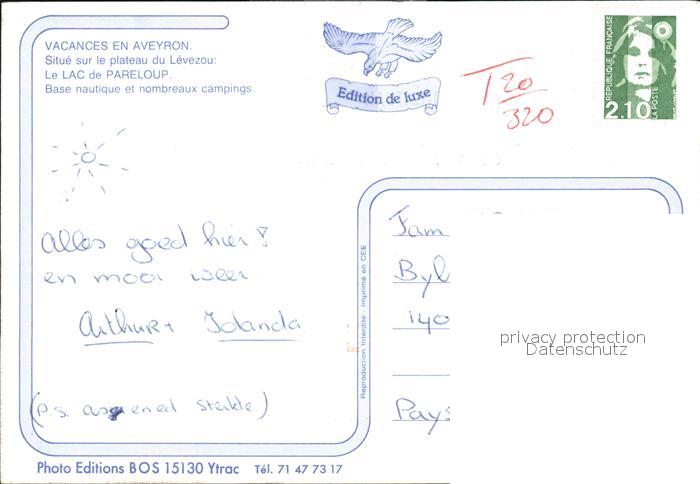 VACANCES EN AVEYRON.
Situé sur le plateau du Lévezou:
Le LAC de PARELOUP.
Base nautique et nombreaux campings.
Edition de luxe
T 20
320
REPUBLIQUE FRANÇAISE
2,10
LA POSTE
alles goed hier!
en mooi weer
Arthur + Jolanda
(p.s. sterkte)
Fam
Byl
140
Pays
Reproduction Interdite Imprimé en CEE
privacy protection
Datenschutz
Photo Editions BOS 15130 Ytrac Tél. 71 47 73 17